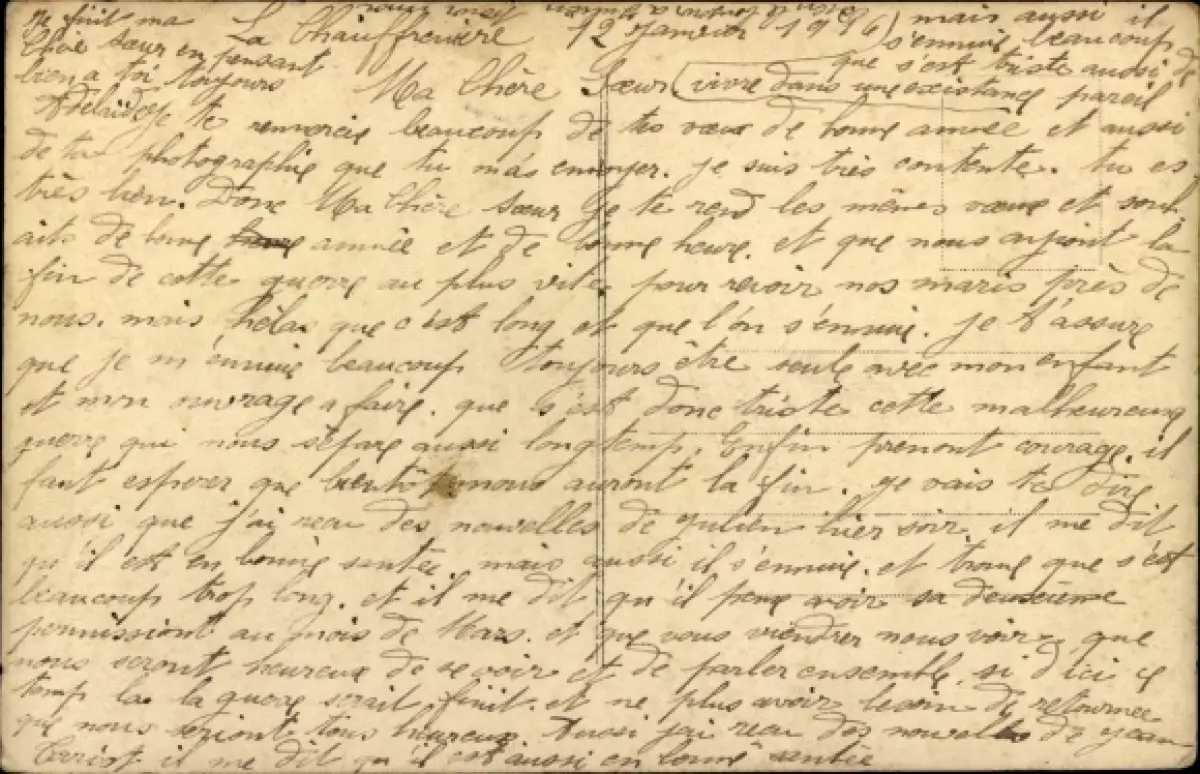 La Chauffreniere 12 Janvier 1916
Ma Chère Sœur
je te remercie beaucoup de tes vœux de bonne année et aussi
de ta photographie que tu m'as envoyer. je suis très contente. tu es
très bien. Donc Ma Chère Sœur je te rend les mêmes vœux et souh
aits de bonne année et de bonne heure. et que nous arjiont la
fin de cette guerre au plus vite pour revoir nos maris près de
nous. mais hélas que c'est long et que l'on s'ennuie. je t'assure
que je m'ennuie beaucoup toujours être seule avec mon enfant
et mon ouvrage a faire. que s'est donc triste cette malheureuse
guerre qui nous sépare aussi longtemp. Enfin prenont courage. il
faut esperer que bientôt nous auront la fin. je vais te dire
aussi que j'ai reçu des nouvelles de Julien hier soir. il me dit
qu'il est en bonne santée. mais aussi il s'ennuie. et trouve que s'est
beaucoup trop long. et il me dit qu'il pense avoir sa deuxième
permissiont au mois de Mars. et que vous viendrer nous voir. que
nous seront heureux de se voir et de parler ensemble. si d'ici ce
temp la la guerre serait finit. et ne plus avoir besoin de retournee
que nous seriont tous heureux. Aussi j'ai reçu des nouvelles de Jean
il me dit qu'il est aussi en bonne santée
mais aussi il
s'ennuie beaucoup
que s'est triste aussi de
vivre dans une existance pareil
je finit ma
Chère sœur en pensant
bien a toi toujours
Adelaïde